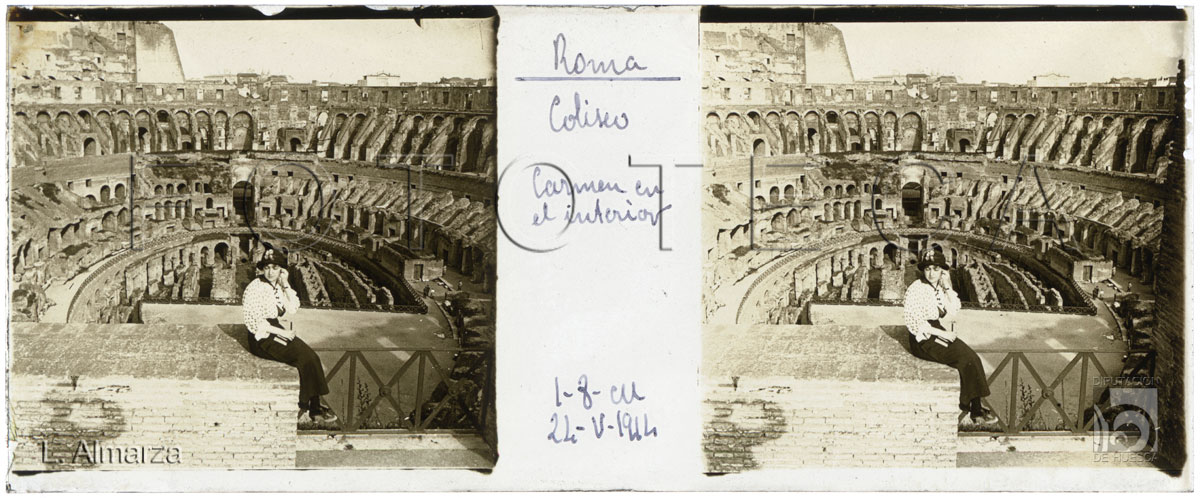 Roma
Coliseo
Carmen en
el interior
FOTOTECA
1-8-cu
24-V-1914
L. Almarza
DIPUTACIÓN
DE HUESCA